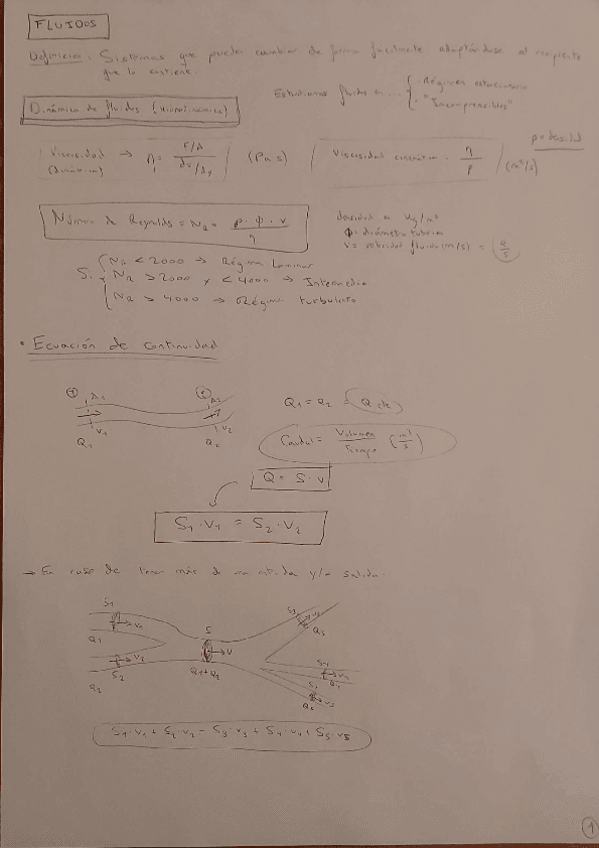 FLUIDOS
Definición: Sistemas que pueden cambiar de forma facilmente adaptándose al recipiente
que lo contiene.
Estudiamos fluidos en ... { · Régimen estacionario
· "Incompresibles"
Dinámica de fluidos (Hidrodinámica)
ρ = densidad
Viscosidad (dinámica) → η = F/A / dv/dy (Pa s)
Viscosidad cinemática = η / ρ (m²/s)
Número de Reynolds = NR = ρ · Φ · v / η
densidad en kg/m³
Φ = diámetro tubería
v = velocidad fluido (m/s) = (Q/S)
Si { NR < 2000 → Régimen Laminar
NR > 2000 y < 4000 → Intermedio
NR > 4000 → Régimen turbulento
• Ecuación de continuidad
① A1 ② A2
v1 v2
Q1 Q2
Q1 = Q2 = Q cte
Caudal = Volumen / Tiempo (m³/s)
Q = S · v
S1 · v1 = S2 · v2
→ En caso de tener más de una entrada y/o salida.
S1 v1 Q1
S2 v2 Q2
S v Q1+Q2
S3 v3 Q3
S4 v4 Q4
S5 v5 Q5
S1 · v1 + S2 · v2 = S3 · v3 + S4 · v4 + S5 · v5
1